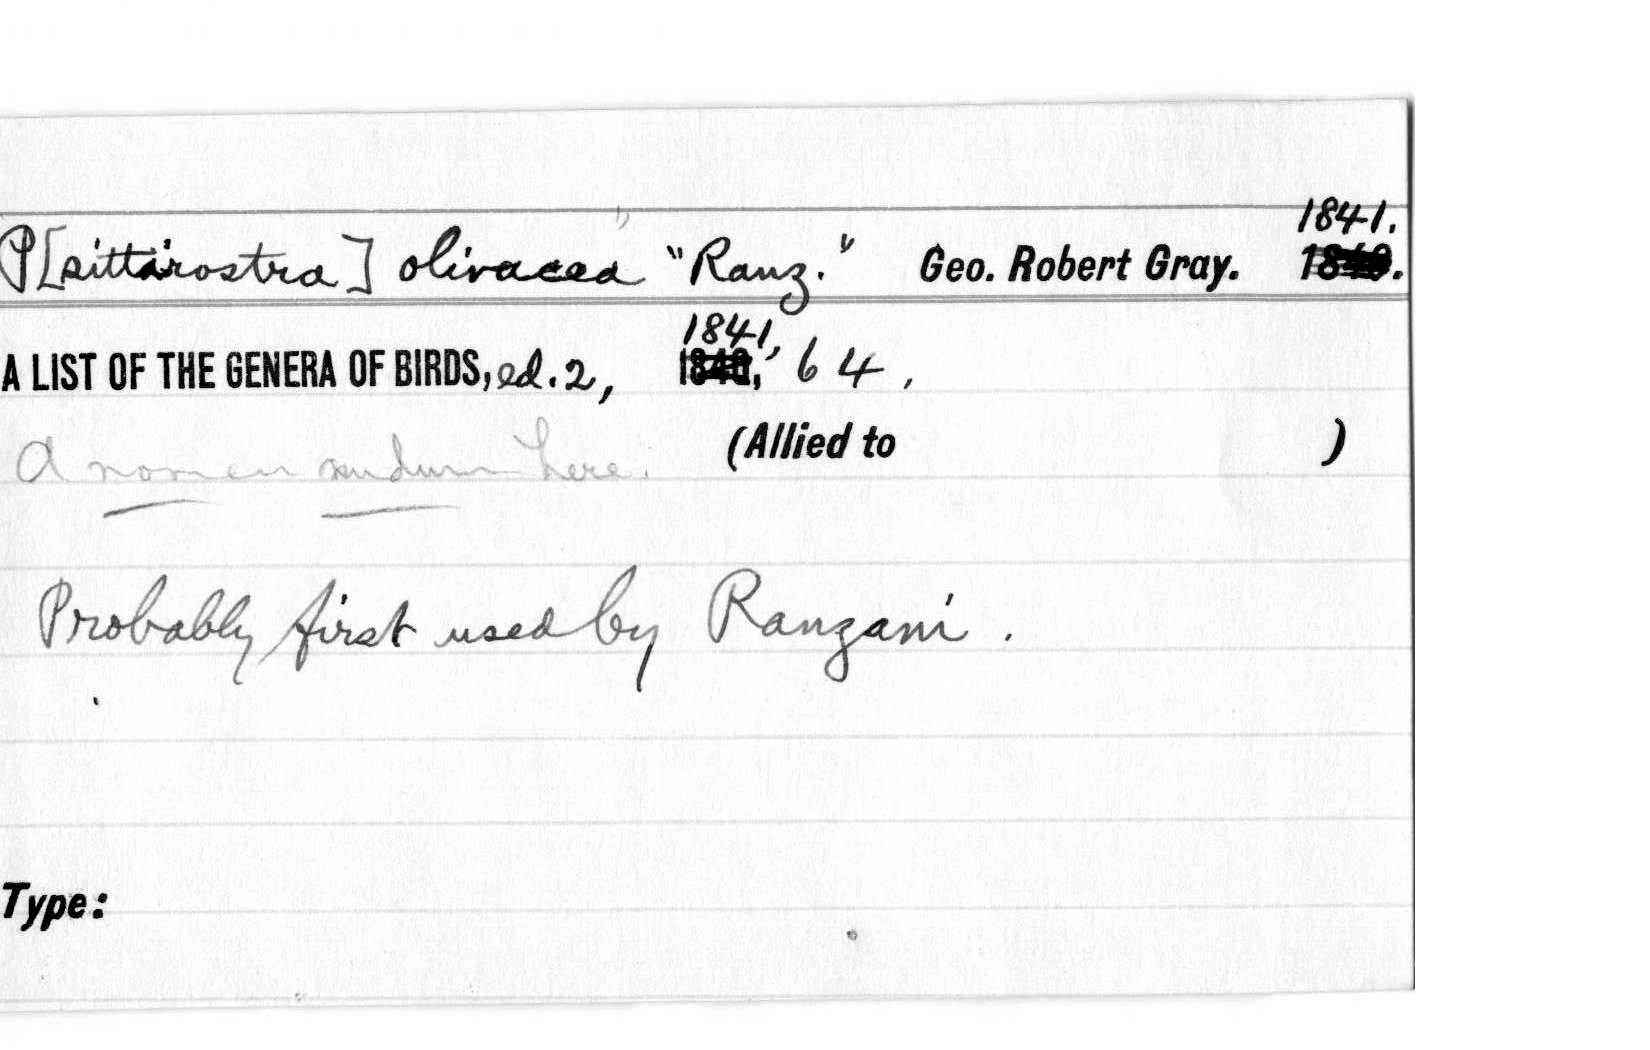 1841.
P[sittirostra] olivacea "Ranz." Geo. Robert Gray. 1840.
1841,
A LIST OF THE GENERA OF BIRDS, ed. 2, 1840, 64,
A nomen nudum here. (Allied to )
Probably first used by Ranzani.
Type: